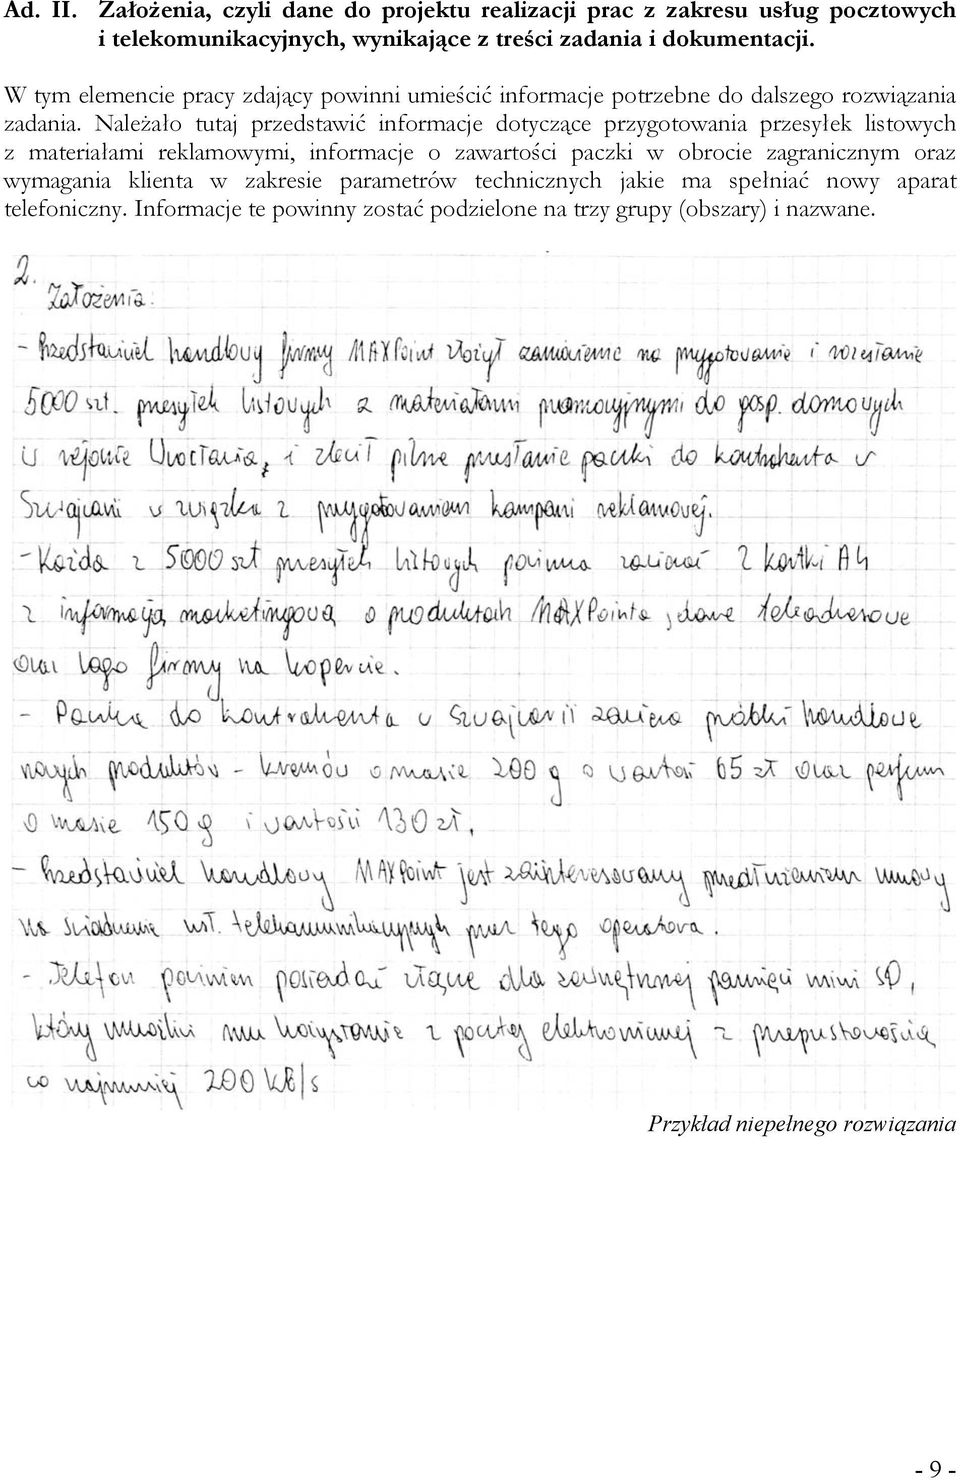 Ad. II. Założenia, czyli dane do projektu realizacji prac z zakresu usług pocztowych
i telekomunikacyjnych, wynikające z treści zadania i dokumentacji.
W tym elemencie pracy zdający powinni umieścić informacje potrzebne do dalszego rozwiązania
zadania. Należało tutaj przedstawić informacje dotyczące przygotowania przesyłek listowych
z materiałami reklamowymi, informacje o zawartości paczki w obrocie zagranicznym oraz
wymagania klienta w zakresie parametrów technicznych jakie ma spełniać nowy aparat
telefoniczny. Informacje te powinny zostać podzielone na trzy grupy (obszary) i nazwane.
2. Założenia:
- Przedstawiciel handlowy firmy MAXPoint złożył zamówienie na przygotowanie i rozesłanie
5000 szt. przesyłek listowych z materiałami promocyjnymi do gosp. domowych
w rejonie Wrocławia, i zlecił pilne przesłanie paczki do kontrahenta w
Szwajcarii w związku z przygotowaniem kampanii reklamowej.
- Każda z 5000 szt przesyłek listowych powinna zawierać 2 kartki A4
z informacją marketingową o produktach MAXPointa, dane teleadresowe
oraz logo firmy na kopercie.
- Paczka do kontrahenta w Szwajcarii zawiera próbki handlowe
nowych produktów - kremów o masie 200 g o wartości 65 zł oraz perfum
o masie 150 g i wartości 130 zł.
- Przedstawiciel handlowy MAXPoint jest zainteresowany przedłużeniem umowy
na świadczenie usł. telekomunikacyjnych przez tego operatora.
- Telefon powinien posiadać złącze dla zewnętrznej pamięci mini SD,
który umożliwi mu korzystanie z poczty elektronicznej z przepustowością
co najmniej 200 kB/s
Przykład niepełnego rozwiązania
- 9 -